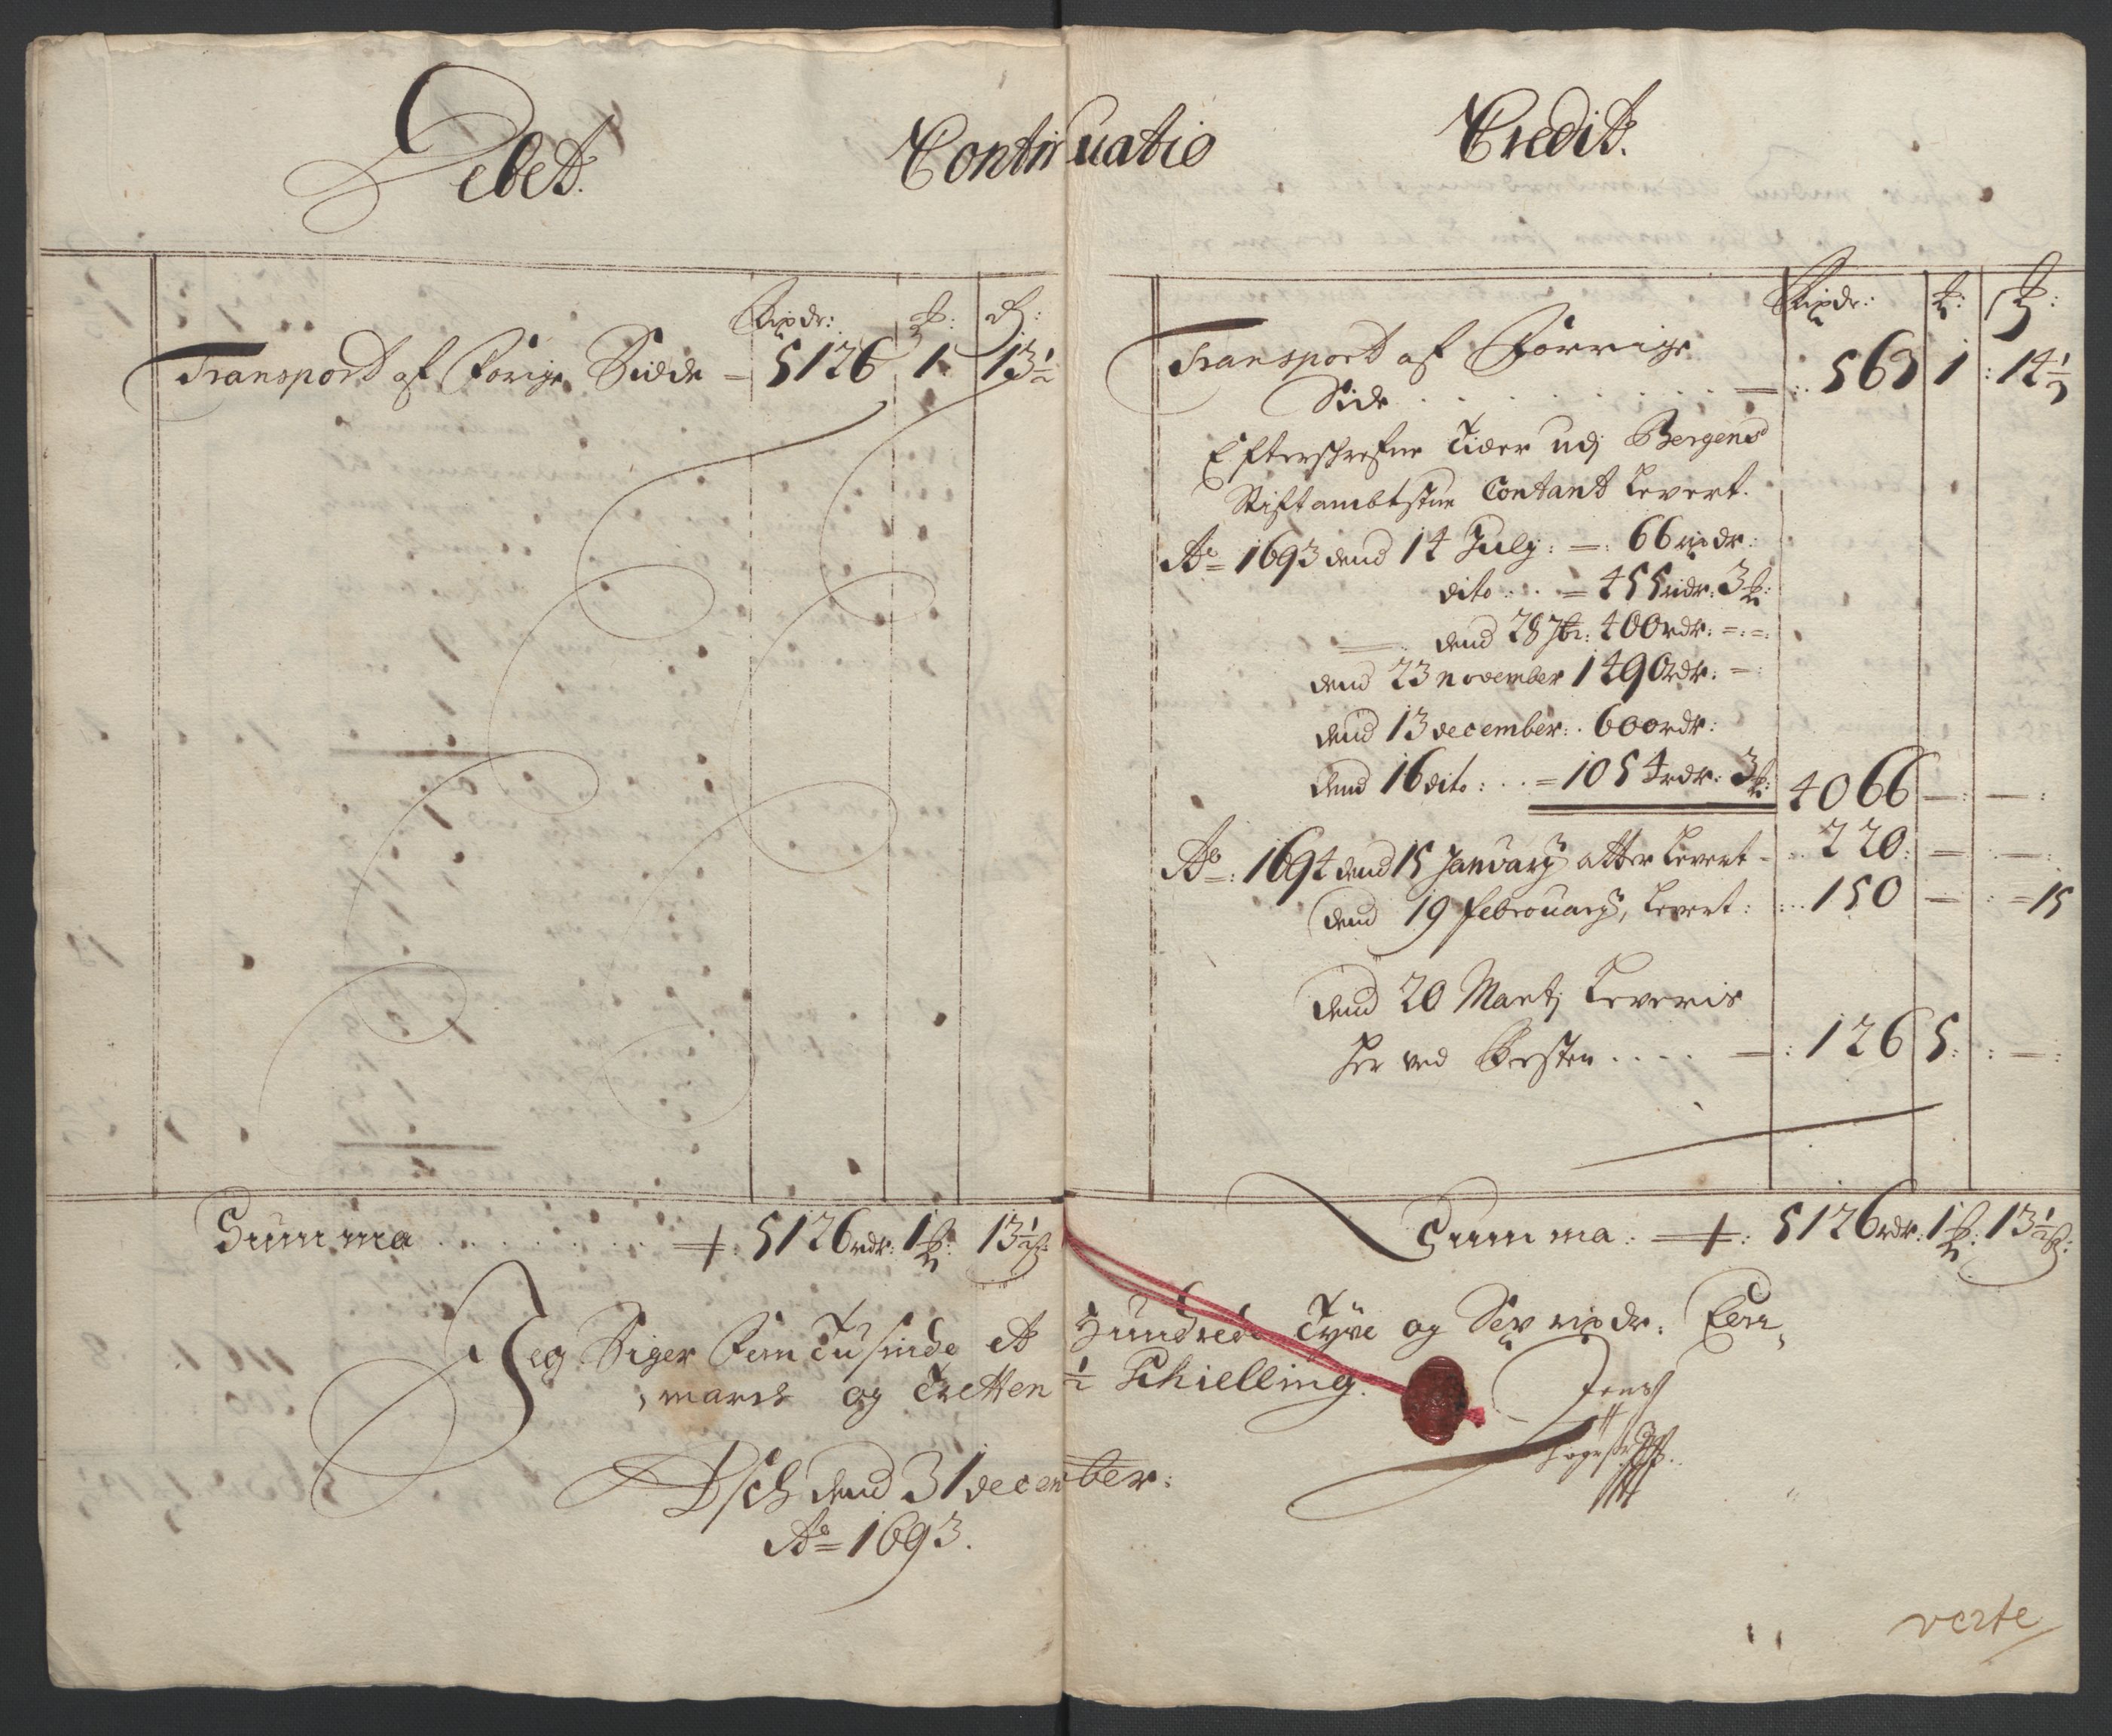 Debet.
Continuatio
Credit.
Rixdr: mk: ß:
Transport af Forige Sidde = 5126 1 13½
Summa . . . . . . . 5126 rdr: 1 mk: 13½ ß:
Rixdr: mk: ß:
Transport af Forrige
Side . . . . . . . . 563 1 14½
Efterschrefne Tider udj Bergens
Stiftambtstue Contant Levert.
Ao 1693 dend 14 July: =: 66 rixdr:
dito: . . = 455 rixdr: 3 mk:
dend 28 7br: 400 rdr: =:=:
dend 23 november 1490 rdr: =:
dend 13 december: . 600 rdr:
dend 16 dito: . . = 1054 rdr: 3 mk: 4066 — : — :
Ao: 1694 dend 15 January atter Levert 220: — : — :
dend 19 februarij, Levert: 150 — : = 15
dend 20 Martj Leveris
her ved Resten . . . . 126 5: : — :
Summa: 5126 rdr: 1 mk: 13½ ß:
Jeg Siger Fem Tusinde et Hundrede Tyve og Sex rixdr: Een
marck og Tretten ½ Schielling.
Jens
Dend 31 december:
Ao = 1693.
verte